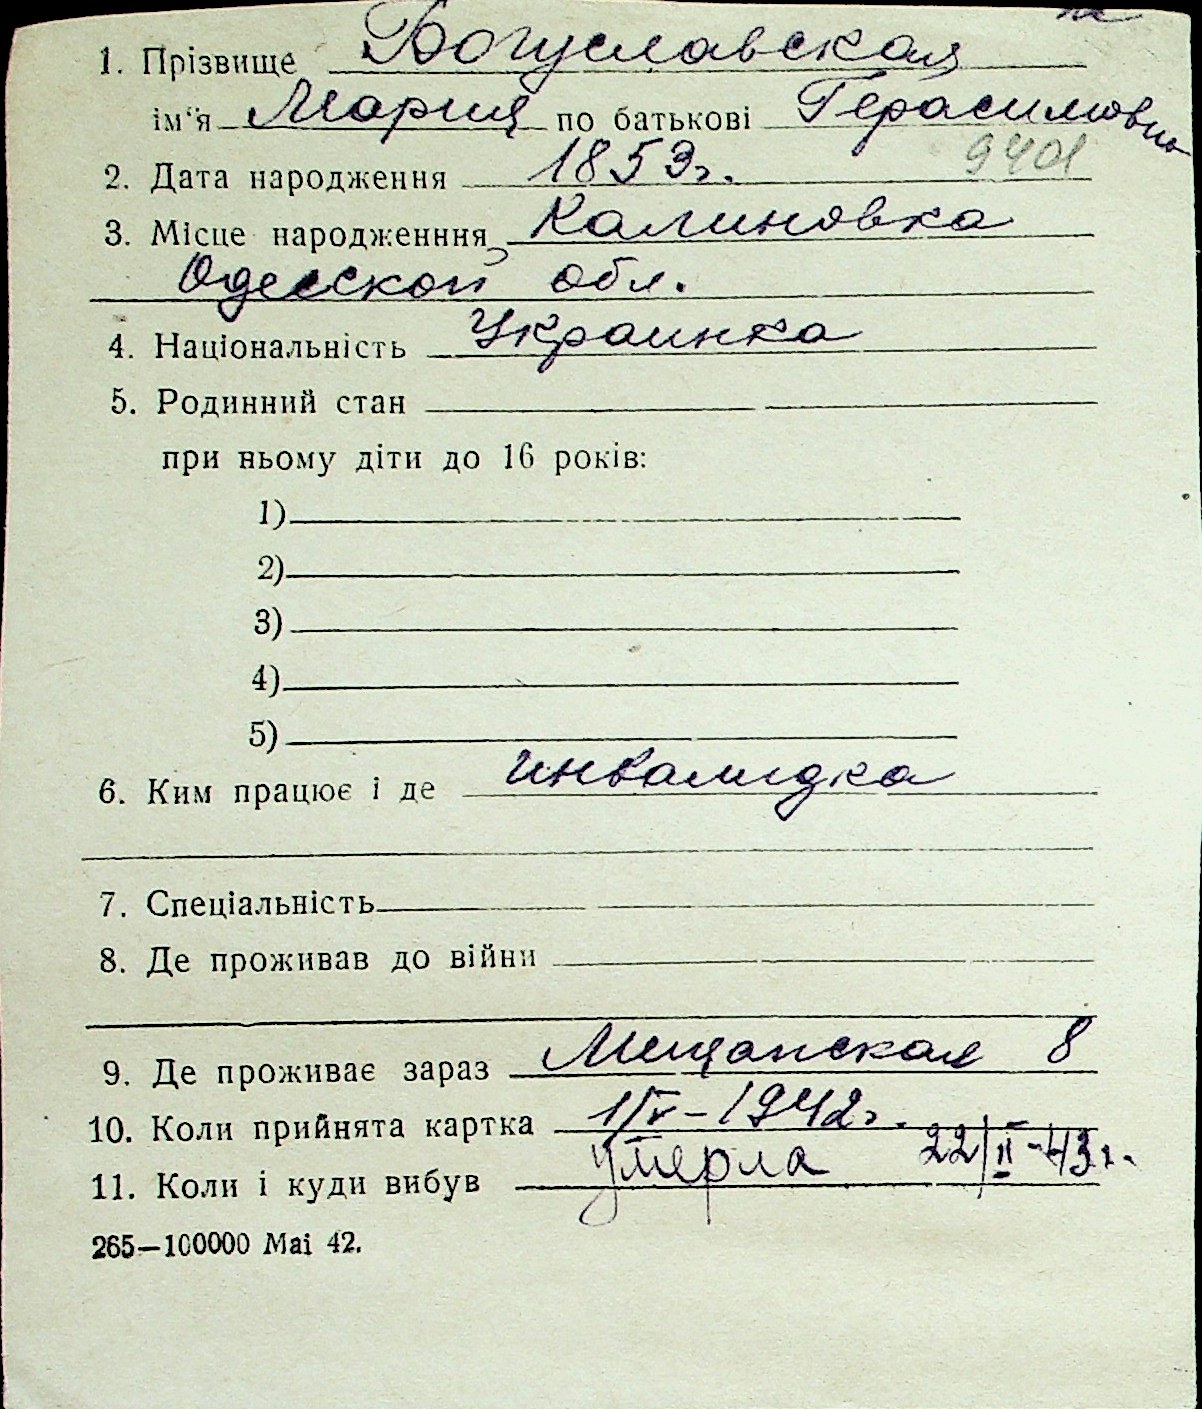 1. Прізвище Богуславская
ім'я Мария по батькові Герасимовна
9401
2. Дата народження 1853г.
3. Місце народженння Калиновка
Одесской обл.
4. Національність Украинка
5. Родинний стан
при ньому діти до 16 років:
1)
2)
3)
4)
5)
6. Ким працює і де инвалидка
7. Спеціальність
8. Де проживав до війни
9. Де проживає зараз Мещанская 8
10. Коли прийнята картка 1/V-1942г.
11. Коли і куди вибув умерла 22/II-43г.
265—100000 Mai 42.